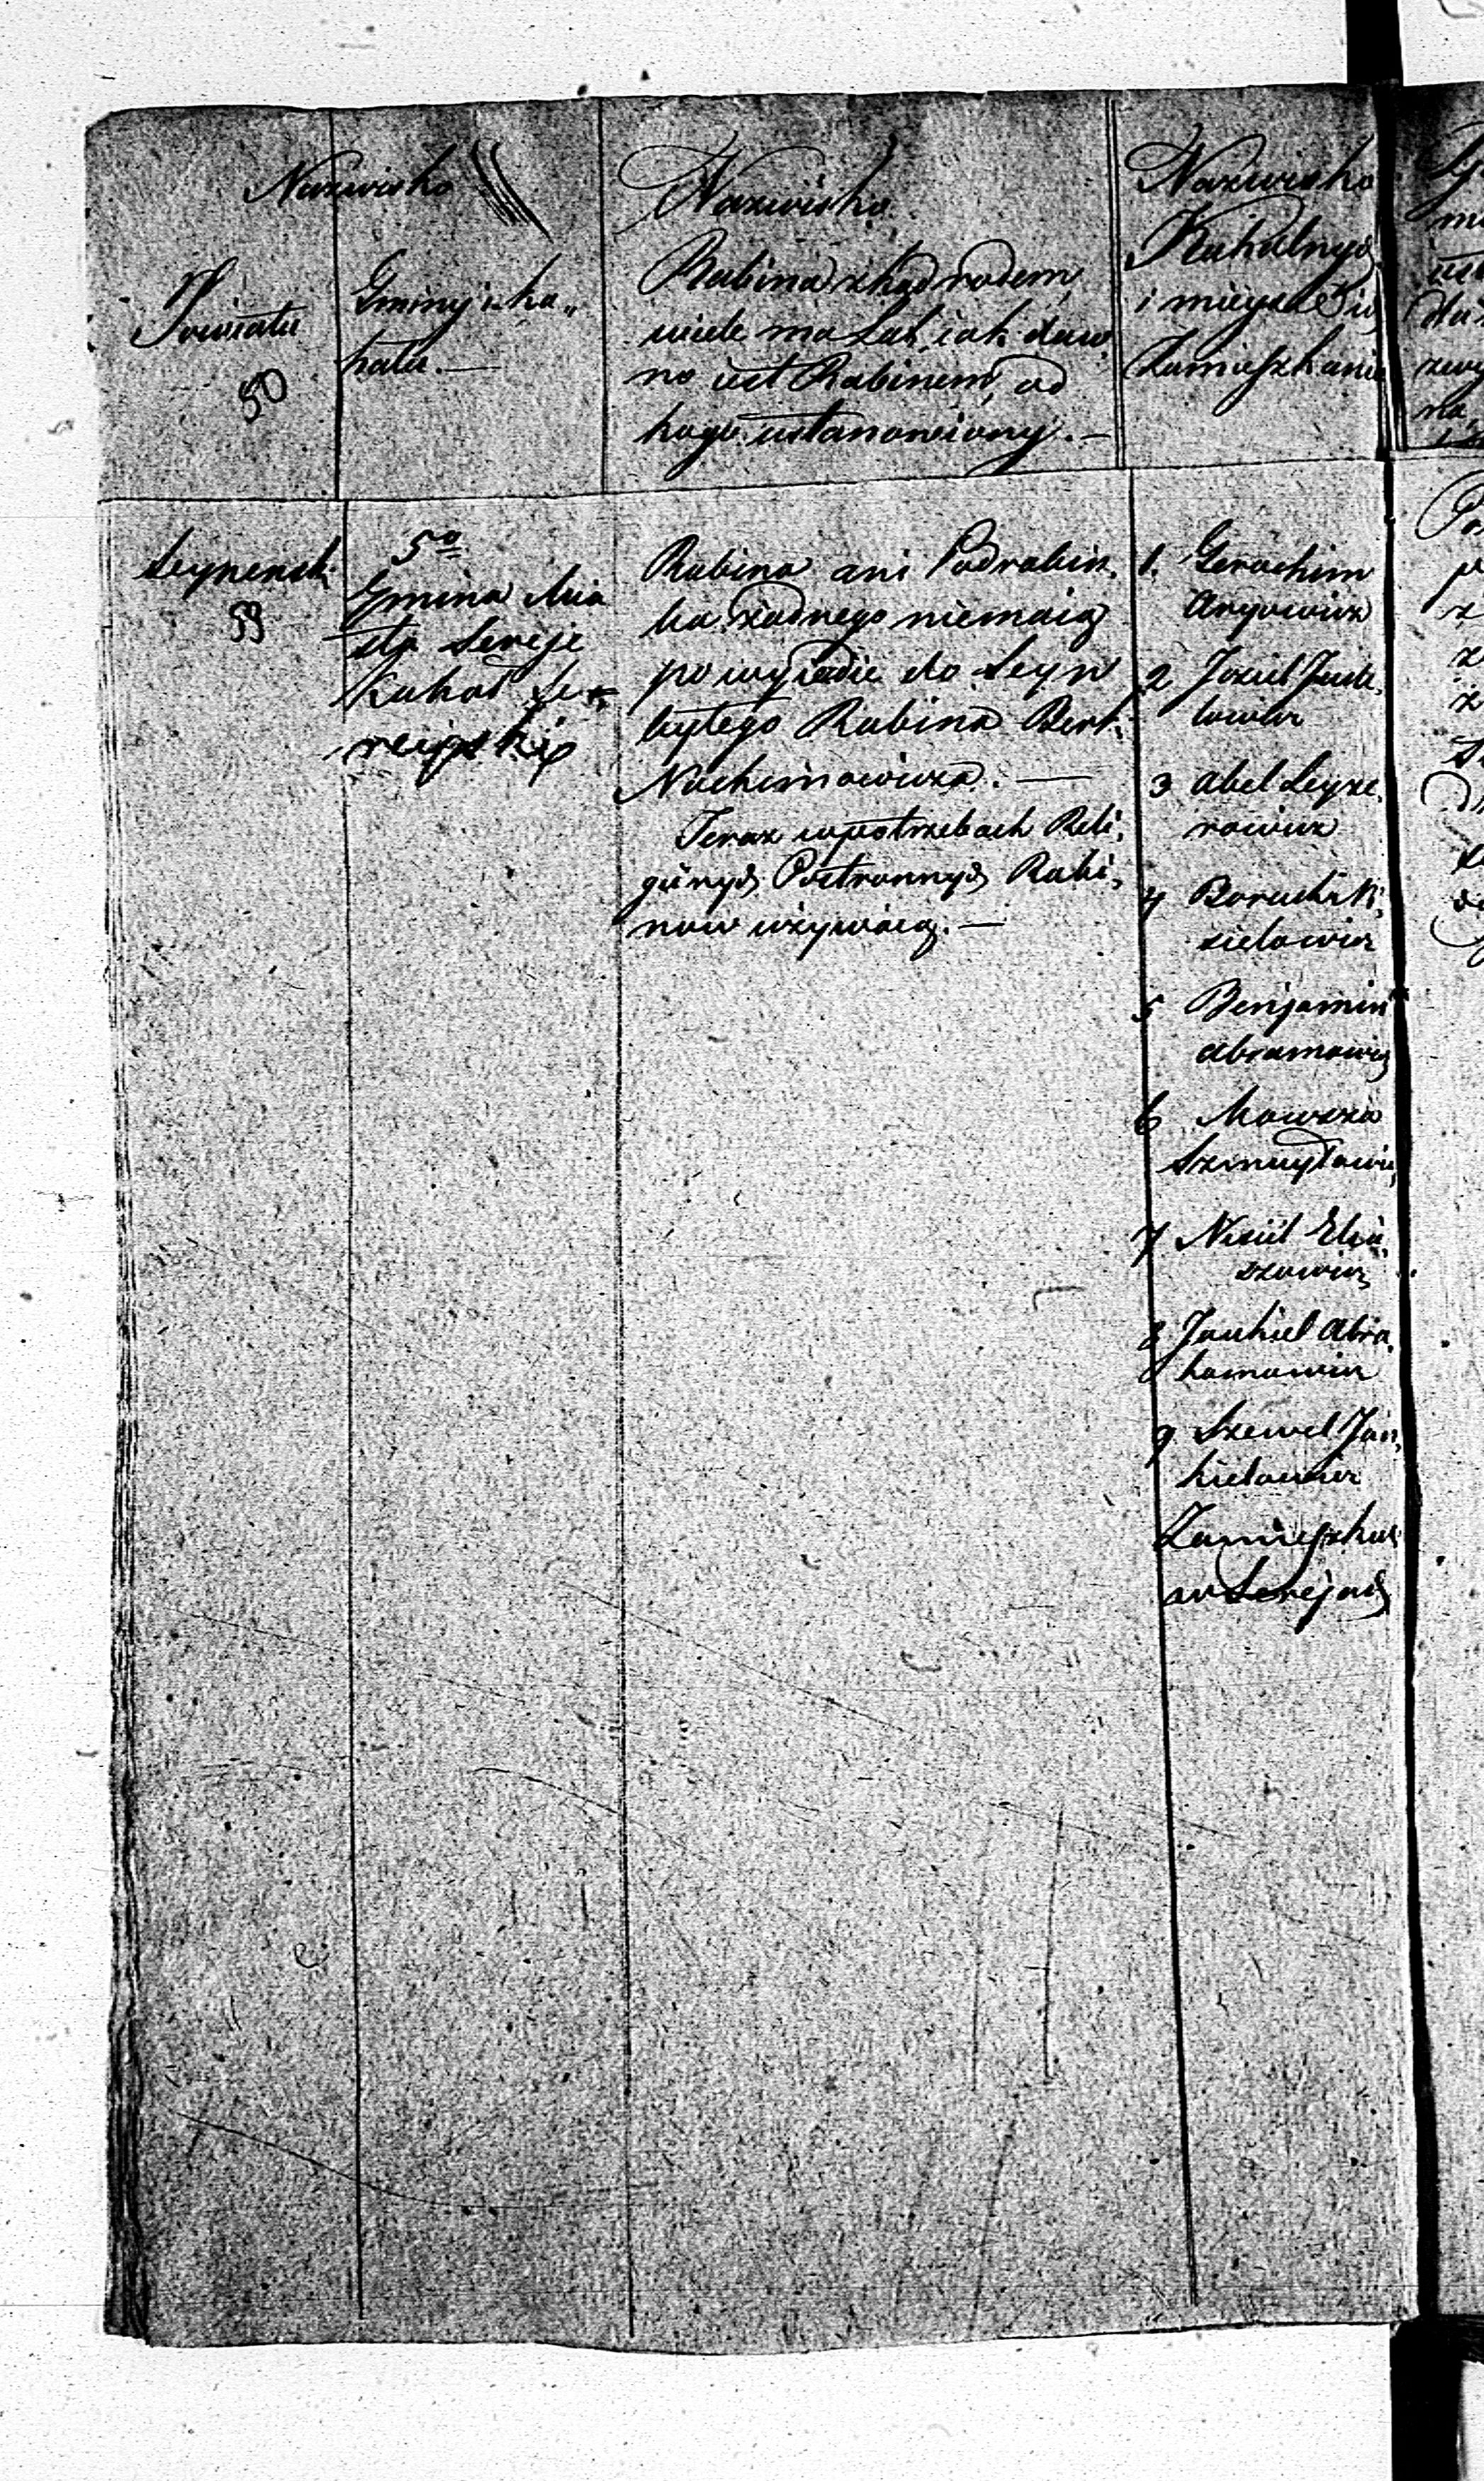 Nazwisko
Powiatu
Gminy i ka„
hału.—
Nazwisko
Rabina zkąd rodem,
wiele ma Lat, iak daw„
no iest Rabinem, od
kogo ustanowiony.—
Nazwisko
Kahalnych
i mieysce Ich
Zamieszkania
Seynenski
5o
Gmina Mia
sta Sereje
Kahał Se„
reiyski
Rabina ani Podrabin„
ka żadnego niemaią
po wyiezdie do Seyn
bytego Rabina Berk.
Nochimowicza.—
Teraz wpotrzebach Reli„
giinych Postronnych Rabi„
now używaią.—
1. Gerachim
Aryowicz
2 Joziel Jude„
lowicz
3 Abel Leyze„
rowicz
4 Boruch Ki„
zielowicz
5 Benjamin
Abramowicz
6 Mowsza
Szmuyłowicz
7 Nisiel Elia„
szowicz
8 Jankiel Abra„
hamowicz
9 Szewel Jan„
kielowicz
Zamieszkali
w Serejach